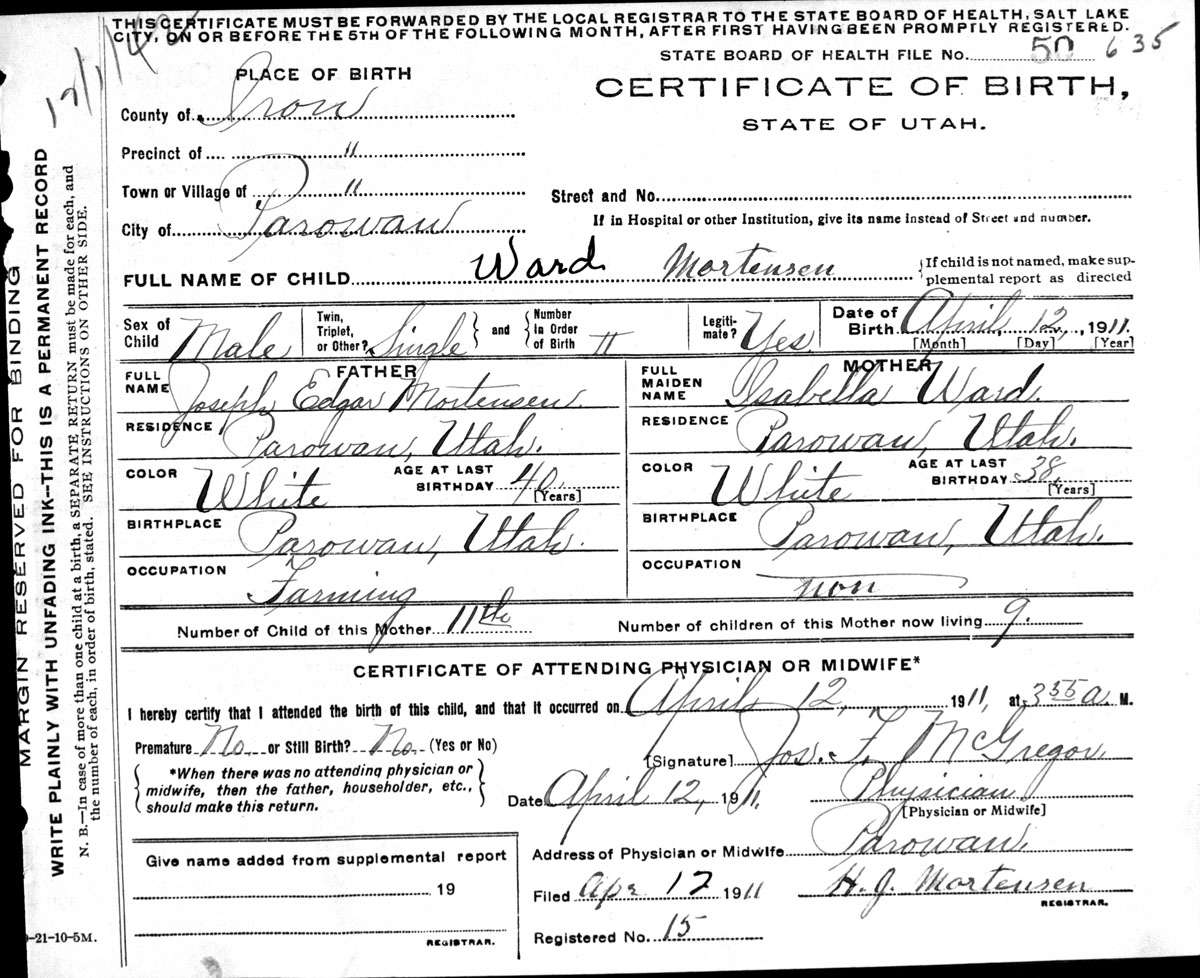 THIS CERTIFICATE MUST BE FORWARDED BY THE LOCAL REGISTRAR TO THE STATE BOARD OF HEALTH, SALT LAKE
CITY, ON OR BEFORE THE 5TH OF THE FOLLOWING MONTH, AFTER FIRST HAVING BEEN PROMPTLY REGISTERED.
STATE BOARD OF HEALTH FILE No. 50 635
PLACE OF BIRTH
CERTIFICATE OF BIRTH,
STATE OF UTAH.
County of Iron
Precinct of "
Town or Village of "
Street and No.
City of Parowan
If in Hospital or other Institution, give its name instead of Street and number.
FULL NAME OF CHILD Ward Mortensen
If child is not named, make sup-
plemental report as directed
Sex of Child Male
Twin, Triplet, or Other? Single and Number in Order of Birth 11
Legiti-mate? Yes
Date of Birth April 12, 1911.
[Month] [Day] [Year]
FATHER
FULL NAME Joseph Edgar Mortensen.
RESIDENCE Parowan, Utah.
COLOR White AGE AT LAST BIRTHDAY 40. [Years]
BIRTHPLACE Parowan, Utah.
OCCUPATION Farming
MOTHER
FULL MAIDEN NAME Isabella Ward.
RESIDENCE Parowan, Utah.
COLOR White AGE AT LAST BIRTHDAY 38. [Years]
BIRTHPLACE Parowan, Utah.
OCCUPATION non
Number of Child of this Mother 11th Number of children of this Mother now living 9.
CERTIFICATE OF ATTENDING PHYSICIAN OR MIDWIFE*
I hereby certify that I attended the birth of this child, and that it occurred on April 12, 1911, at 3 55 a. M.
Premature No. or Still Birth? No. (Yes or No)
[Signature] Jos. F. McGregor.
*When there was no attending physician or
midwife, then the father, householder, etc.,
should make this return.
Date April 12, 1911. Physician
[Physician or Midwife]
Give name added from supplemental report
19
REGISTRAR.
Address of Physician or Midwife Parowan.
Filed Apr 12 1911 H. J. Mortensen
REGISTRAR.
Registered No. 15
MARGIN RESERVED FOR BINDING
WRITE PLAINLY WITH UNFADING INK--THIS IS A PERMANENT RECORD
N. B.—In case of more than one child at a birth, a SEPARATE RETURN must be made for each, and
the number of each, in order of birth, stated. SEE INSTRUCTIONS ON OTHER SIDE.
-21-10-5M.